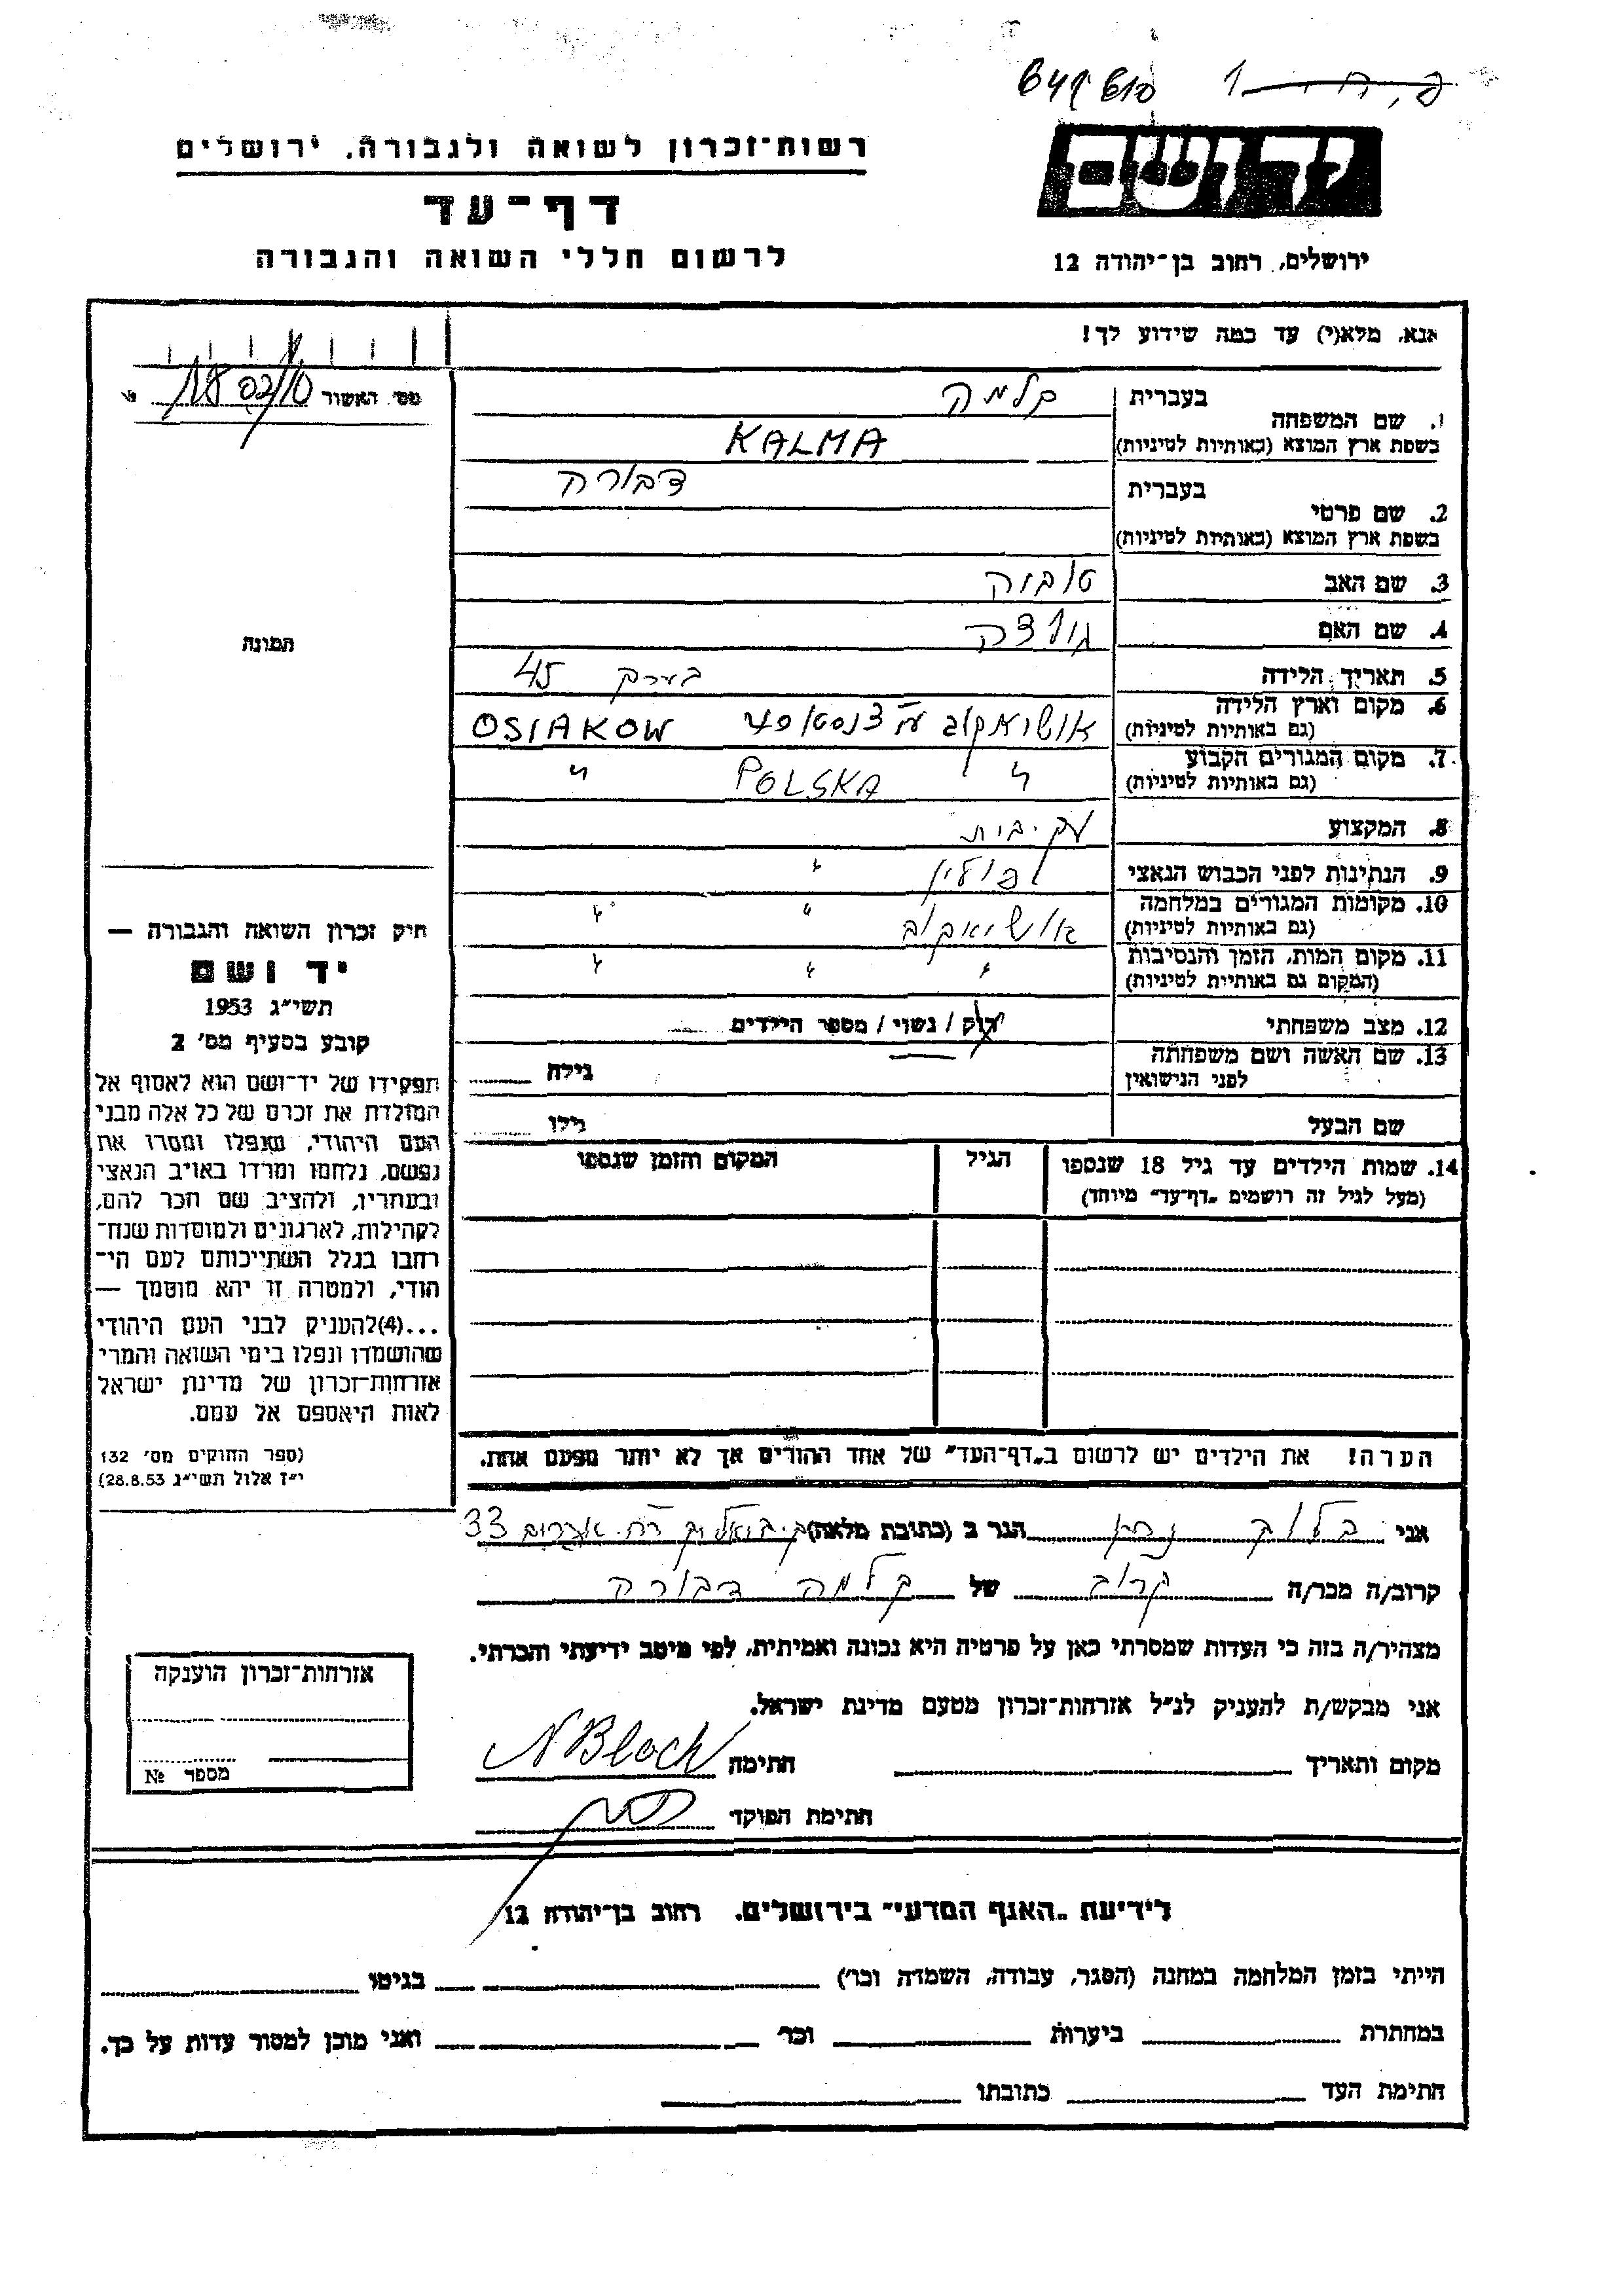 רשות־זכרון לשואה ולגבורה, ירושלים
דף־עד
לרשום חללי השואה והגבורה
ידושם
ירושלים, רחוב בן־יהודה 12
אנא, מלא(י) עד כמה שידוע לך!
1. שם המשפחה בעברית קלמה
בשפת ארץ המוצא (באותיות לטיניות) KALMA
2. שם פרטי בעברית דבורה
בשפת ארץ המוצא (באותיות לטיניות)
3. שם האב
4. שם האם
5. תאריך הלידה בערך 45
6. מקום וארץ הלידה (גם באותיות לטיניות) OSIAKOW
7. מקום המגורים הקבוע (גם באותיות לטיניות) " POLSKA "
8. המקצוע עק. בית
9. הנתינות לפני הכבוש הנאצי פולין "
10. מקומות המגורים במלחמה (גם באותיות לטיניות) אושיאקוב " "
11. מקום המות, הזמן והנסיבות (המקום גם באותיות לטיניות) " " "
12. מצב משפחתי רוק / נשוי / מספר הילדים
13. שם האשה ושם משפחתה לפני הנישואין גילה
שם הבעל גילו
14. שמות הילדים עד גיל 18 שנספו (מעל לגיל זה רושמים „דף־עד” מיוחד) הגיל המקום והזמן שנספו
הערה! את הילדים יש לרשום ב„דף־העד” של אחד ההורים אך לא יותר מפעם אחת.
מס׳ האשור №
תמונה
חיק זכרון השואה והגבורה —
יד ושם
תשי״ג 1953
קובע בסעיף מס׳ 2
תפקידו של יד־ושם הוא לאסוף אל
המולדת את זכרם של כל אלה מבני
העם היהודי, שנפלו ומסרו את
נפשם, נלחמו ומרדו באויב הנאצי
ובעוזריו, ולהציב שם וזכר להם,
לקהילות, לארגונים ולמוסדות שנח־
רבו בגלל השתייכותם לעם הי־
הודי, ולמטרה זו יהא מוסמך —
...(4) להעניק לבני העם היהודי
שהושמדו ונפלו בימי השואה והמרי
אזרחות־זכרון של מדינת ישראל
לאות היאספם אל עמם.
(ספר החוקים מס׳ 132
י״ז אלול תשי״ג 28.8.53)
אני בלוך הגר ב (כתובת מלאה) 33
קרוב/ה מכר/ה קרוב של קלמה דבורה
מצהיר/ה בזה כי העדות שמסרתי כאן על פרטיה היא נכונה ואמיתית, לפי מיטב ידיעתי והכרתי.
אני מבקש/ת להעניק לנ״ל אזרחות־זכרון מטעם מדינת ישראל.
מקום ותאריך חתימה N Bloch
חתימת הפוקד
אזרחות־זכרון הוענקה
מספר №
לידיעת „האגף המדעי” בירושלים, רחוב בן־יהודה 12
הייתי בזמן המלחמה במחנה (הסגר, עבודה, השמדה וכו׳) בגיטו
במחתרת ביערות וכו׳ ואני מוכן למסור עדות על כך.
חתימת העד כתובתו